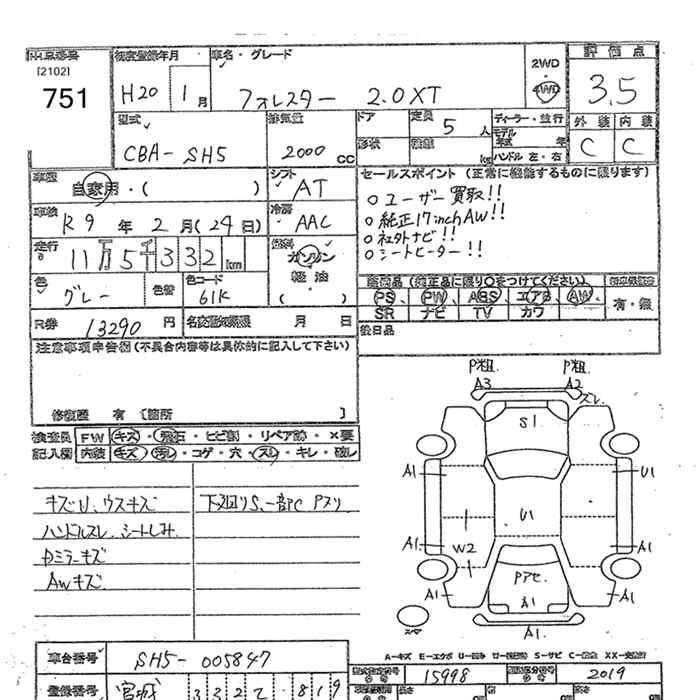 [2102]
751
初度登録年月
H20 1月
車名・グレード
フォレスター 2.0XT
2WD
4WD
評価点
3.5
型式
CBA-SH5
排気量
2000 CC
ドア
形状
定員
5人
kg
ディーラー・並行
モデル
年式 年
ハンドル 左・右
外装 内装
C C
車歴
自家用・( )
シフト
AT
セールスポイント (正常に機能するものに限ります)
○ユーザー買取!!
○純正17inchAW!!
○社外ナビ!!
○シートヒーター!!
車検
R9年2月(24日)
冷房
AAC
走行
11万5千332km
燃料
ガソリン
軽油
( )
色
グレー
色替
色コード
61K
装備品 (純正品に限り○をつけてください)
PS、PW、ABS、エアB、AW、
SR ナビ TV カワ
有・無
R券
13290円
名変期限 月 日
後日品
注意事項申告欄(不具合内容等は具体的に記入して下さい)
修復歴 有 [箇所 ]
検査員 FW キズ・飛石・ヒビ割・リペア跡・×要
記入欄 内装 キズ・汚レ・コゲ・穴・スレ・キレ・破レ
キズU、ウスキズ
ハンドルスレ、シートしみ
Dミラーキズ
AWキズ
下廻りS、一部C Pヌリ
P粗. P粗.
A3 A2
ズレ.
S1
A1 U1
U1
A1 A1
W2
Pアセ
A1
A1 A1
A1
スペヤ
A-キズ E-エクボ U-凹み W-波 S-サビ C-腐食 XX-交換済
車台番号
SH5-005847
型式指定番号
15998
類別区分番号
2019
登録番号
宮城 332 て 819
長さ